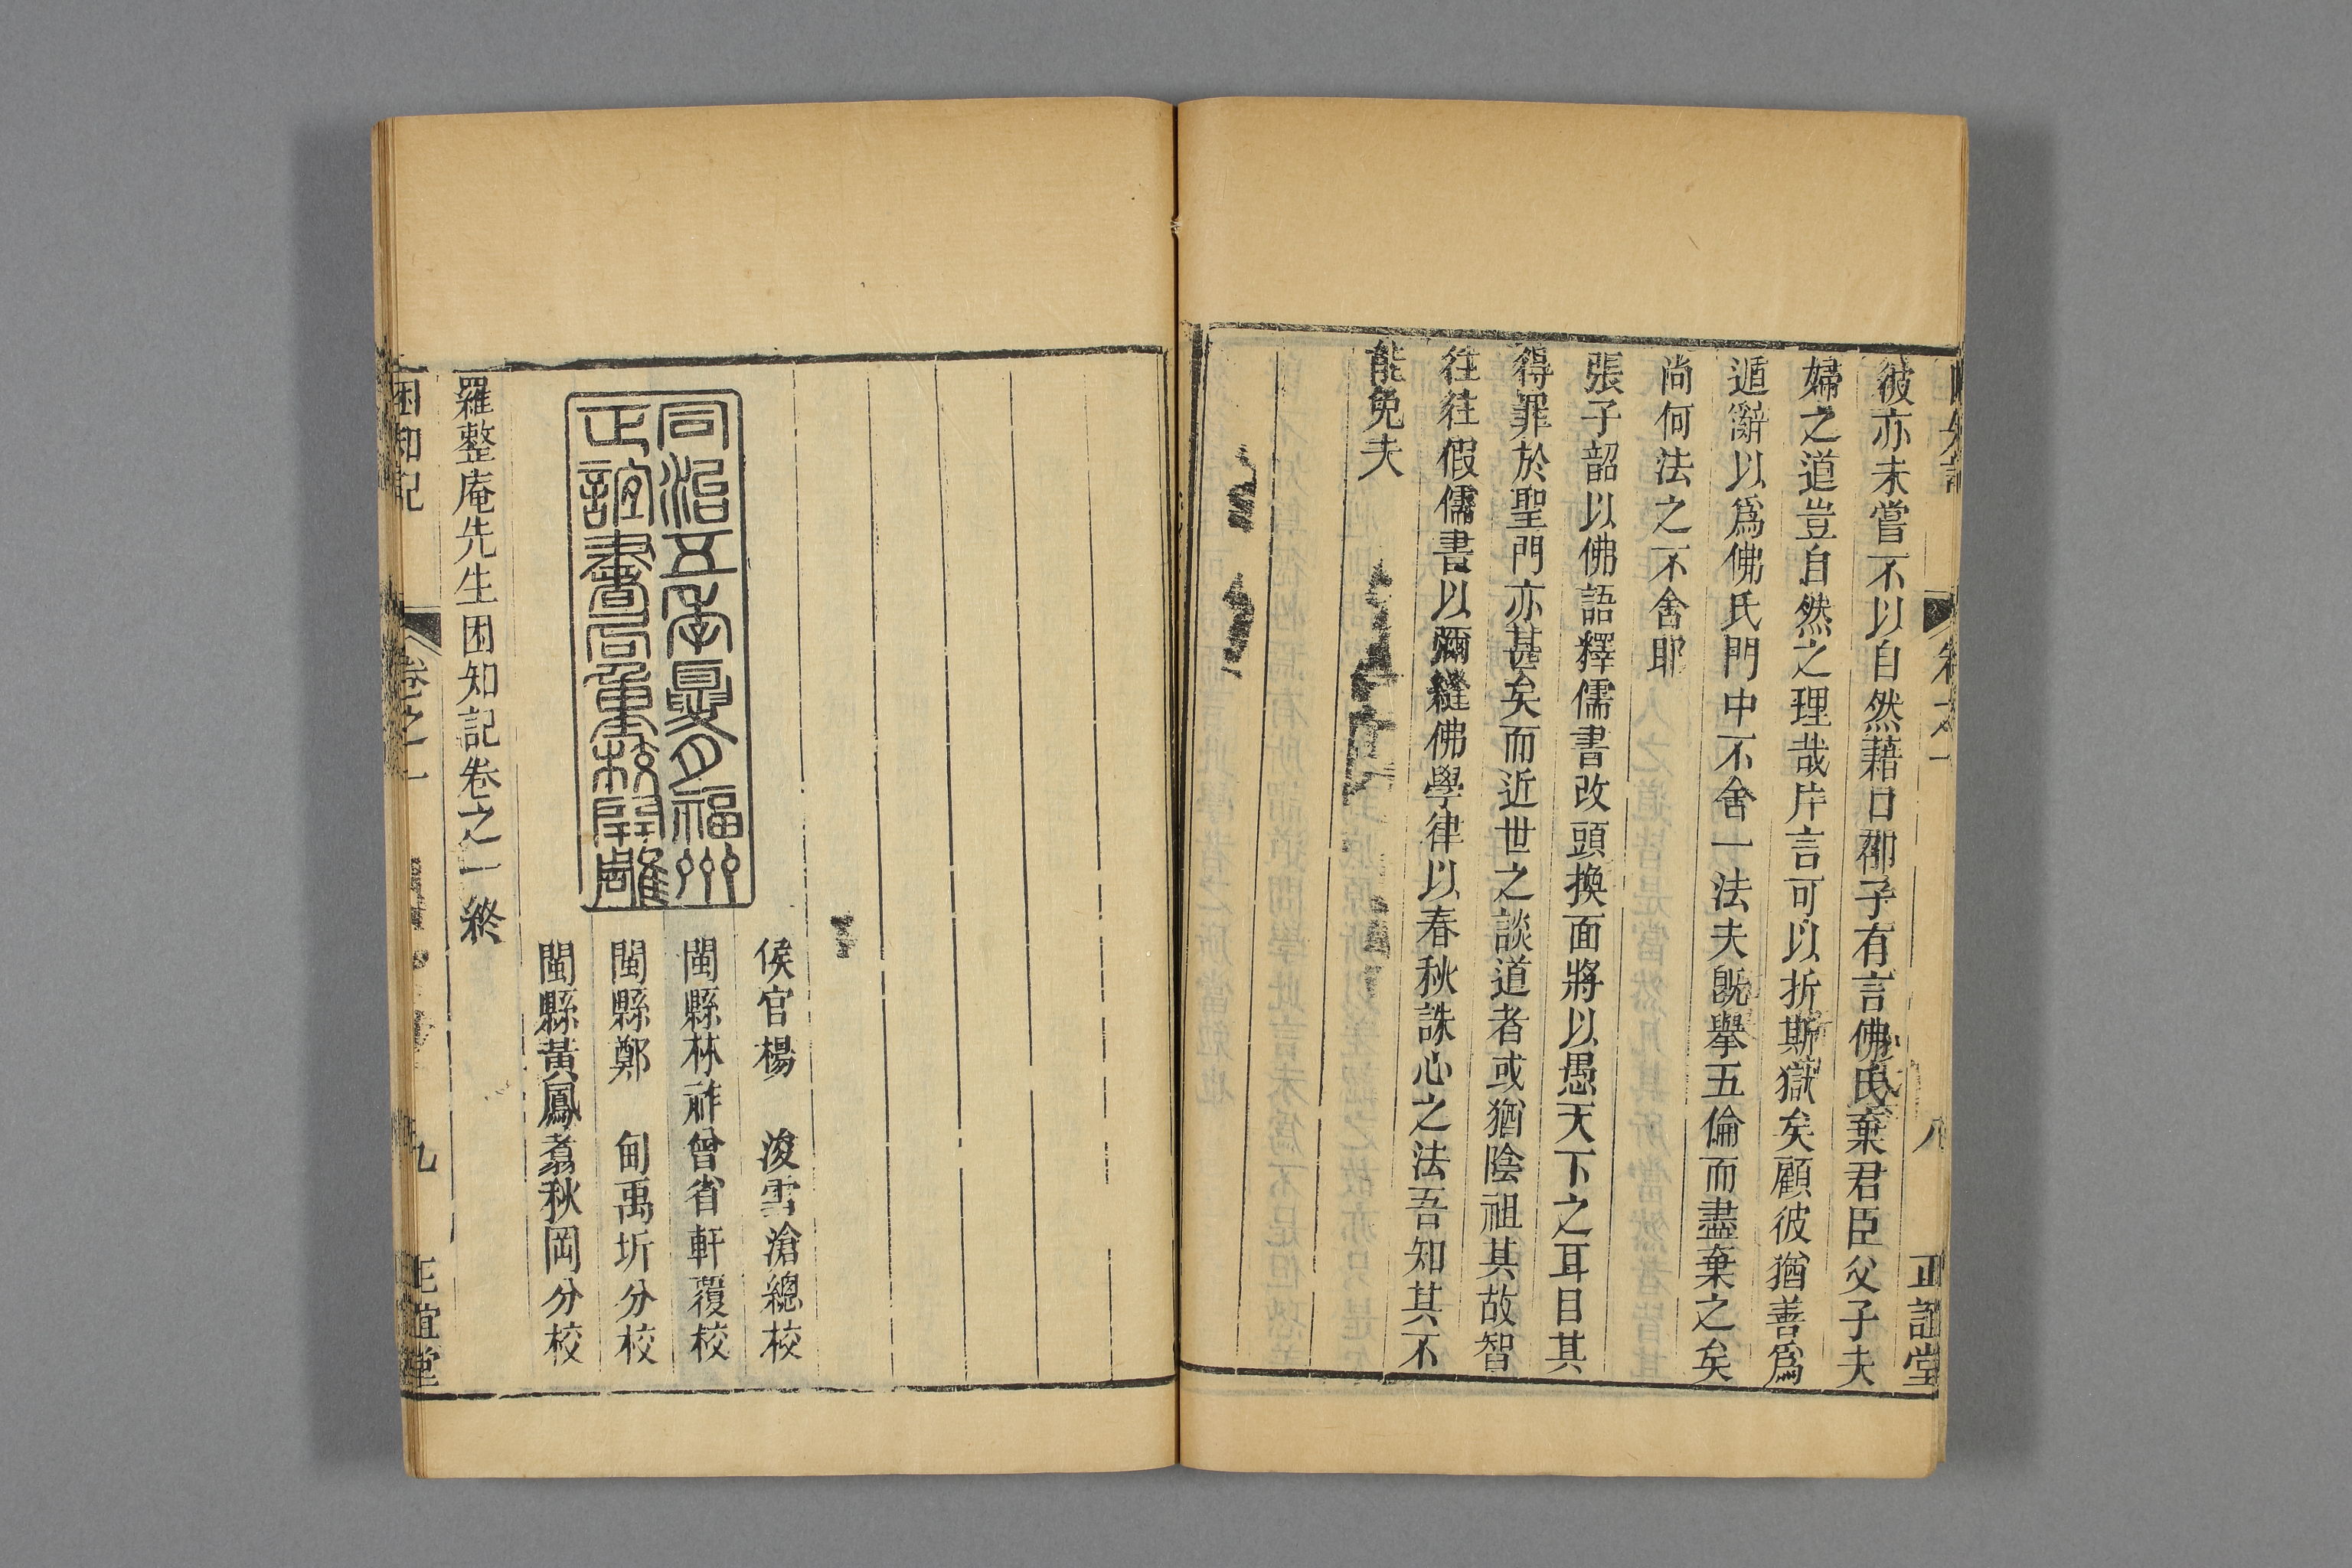 困知記 卷之一 八 正誼堂
彼亦未嘗不以自然藉口邵子有言佛氏棄君臣父子夫
婦之道豈自然之理哉片言可以折斯獄矣顧彼猶善爲
遁辭以爲佛氏門中不舍一法夫旣舉五倫而盡棄之矣
尚何法之不舍耶
張子韶以佛語釋儒書改頭換面將以愚天下之耳目其
得罪於聖門亦甚矣而近世之談道者或猶陰祖其故智
往往假儒書以彌縫佛學律以春秋誅心之法吾知其不
能免夫
侯官楊浚雪滄總校
閩縣林祚曾省軒覆校
閩縣鄭甸禹圻分校
閩縣黃鳳翥秋岡分校
同治五年夏月福州
正誼書局重校開雕
羅整庵先生困知記卷之一終
困知記 卷之一 九 正誼堂